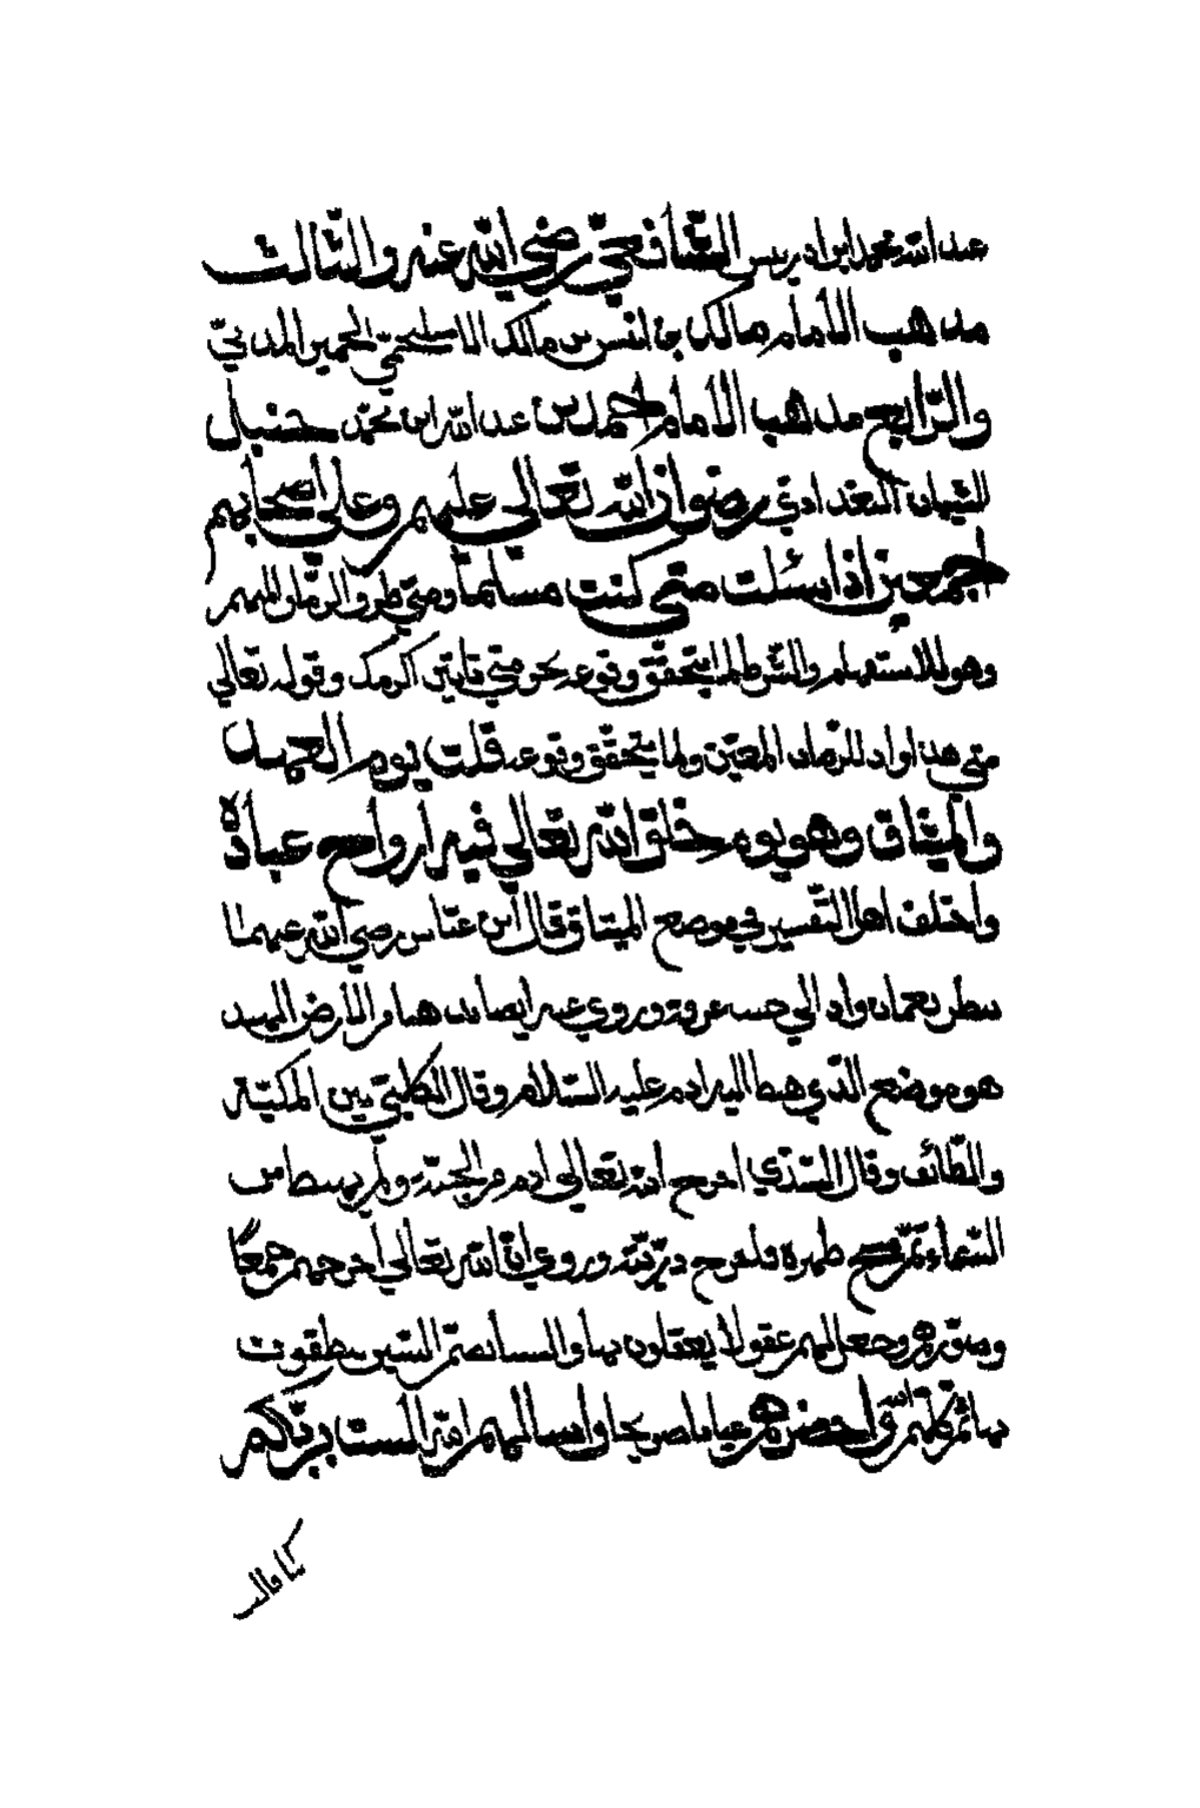 عبد الله محمد ابن ادريس الشافعيّ رضي الله عنه والثالث
مذهب الامام مالك بن انس بن مالك الاصبحيّ الحميريّ المدنيّ
والرّابع مذهب الامام احمد بن عبد الله ابن محمّد حنبل
الشيبان البغداديّ رضوان الله تعالي عليهم وعلي اصحابهم
اجمعين اذا سئلت متي كنت مسلما ومتي ظرف الزمان المبهم
وهو للاستفهام والشرط لما يتحقّق وقوعه نحو متي تاتيني اكرمك وقوله تعالي
متي هذا اواد للزمان المعيّن ولما يتحقّق وقوعه قلت يوم العهد
والميثاق وهو يوم خلق الله تعالي فيه ارواح عباده
واختلف اهل التفسير في موضع الميثاق قال ابن عبّاس رضي الله عنهما
ببطن نعمان واد الي جنب عرفة وروي عنه ايضا من الارض الهند
هو موضع الذي هبط اليه ادم عليه السّلام وقال الكلبيّ بين المكيّة
والطّائف وقال السّدّي اخرج الله تعالي ادم من الجنّة ولم يهبط من
السّماء ثمّ مسح ظهره فاخرج ذرّيّته وروي انّ الله تعالي اخرجهم جميعا
وصوّرهم وجعل لهم عقولا يعقلون بها والسنا ثمّ ينطقون
بها ثمّ كلّهم الله احضرهم عيانا صريحا اليهم الله الست بربّكم
كما قال